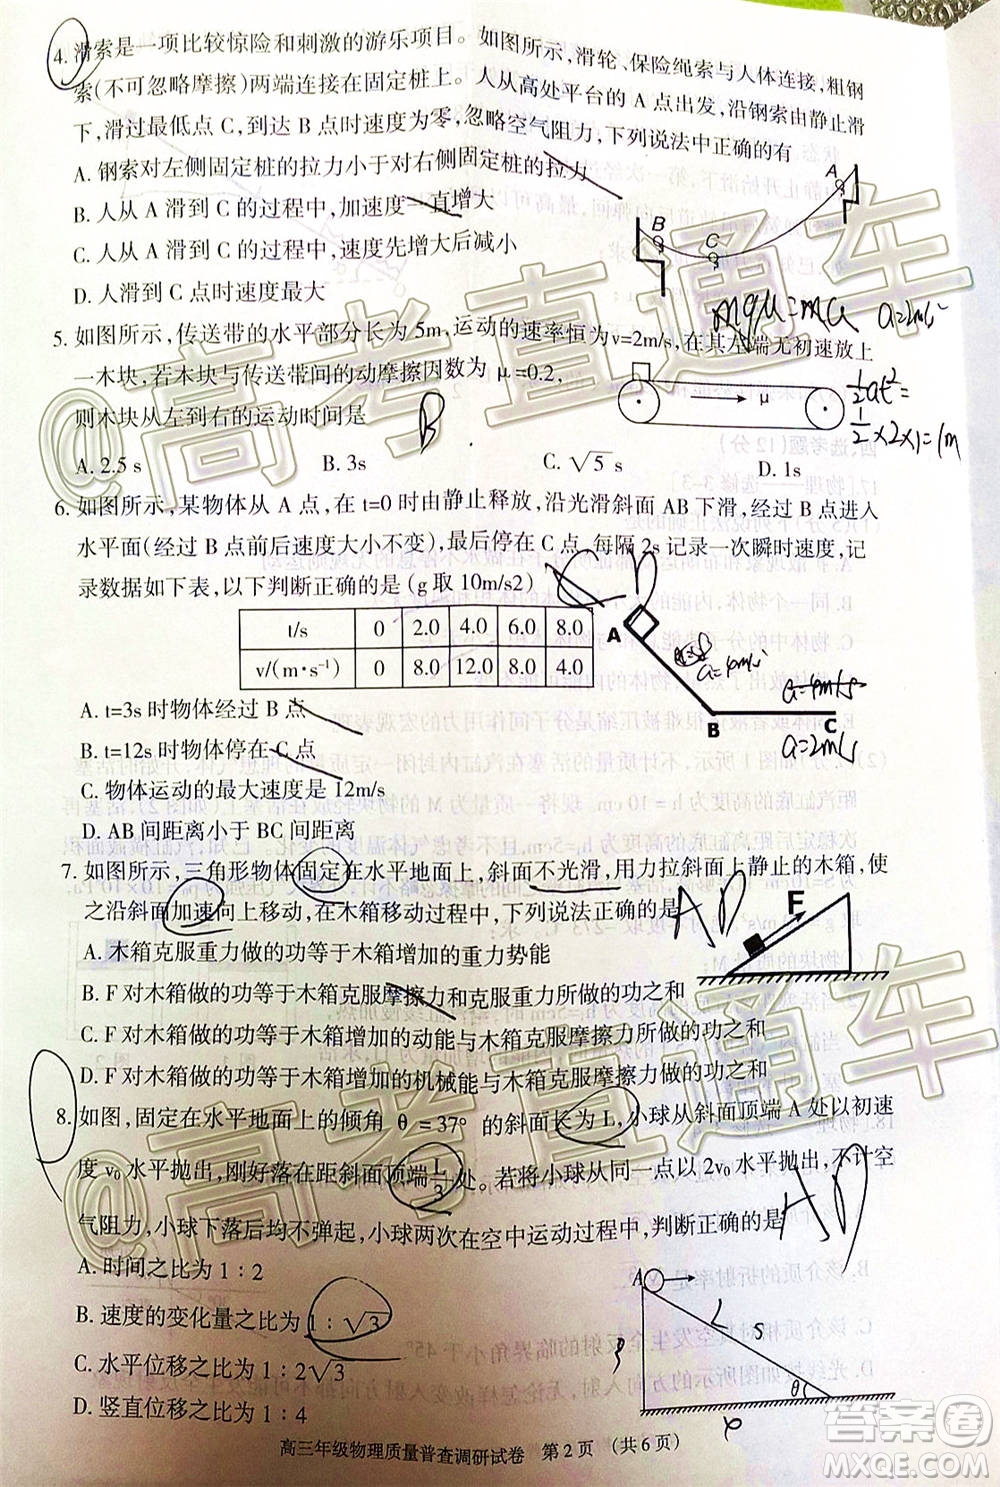 4. 滑索是一项比较惊险和刺激的游乐项目。如图所示,滑轮、保险绳索与人体连接,粗钢
索(不可忽略摩擦)两端连接在固定桩上。人从高处平台的 A 点出发,沿钢索由静止滑
下,滑过最低点 C,到达 B 点时速度为零,忽略空气阻力,下列说法中正确的有
A. 钢索对左侧固定桩的拉力小于对右侧固定桩的拉力
B. 人从 A 滑到 C 的过程中,加速度一直增大
C. 人从 A 滑到 C 的过程中,速度先增大后减小
D. 人滑到 C 点时速度最大
A
B
C
mgμ=ma a=2m/s
5. 如图所示,传送带的水平部分长为 5m,运动的速率恒为v=2m/s,在其左端无初速放上
一木块,若木块与传送带间的动摩擦因数为 μ=0.2,
则木块从左到右的运动时间是
B
μ
½at²=
½×2×1=1m
A. 2.5 s B. 3s C. √5 s D. 1s
6. 如图所示,某物体从 A 点,在 t=0 时由静止释放,沿光滑斜面 AB 下滑,经过 B 点进入
水平面(经过 B 点前后速度大小不变),最后停在 C 点。每隔 2s 记录一次瞬时速度,记
录数据如下表,以下判断正确的是 (g 取 10m/s2)
t/s 0 2.0 4.0 6.0 8.0
v/(m·s⁻¹) 0 8.0 12.0 8.0 4.0
A
B
C
a=4m/s
a=2m/s
A. t=3s 时物体经过 B 点
B. t=12s 时物体停在 C 点
C. 物体运动的最大速度是 12m/s
D. AB 间距离小于 BC 间距离
7. 如图所示,三角形物体固定在水平地面上,斜面不光滑,用力拉斜面上静止的木箱,使
之沿斜面加速向上移动,在木箱移动过程中,下列说法正确的是
AD
F
A. 木箱克服重力做的功等于木箱增加的重力势能
B. F 对木箱做的功等于木箱克服摩擦力和克服重力所做的功之和
C. F 对木箱做的功等于木箱增加的动能与木箱克服摩擦力所做的功之和
D. F 对木箱做的功等于木箱增加的机械能与木箱克服摩擦力所做的功之和
8. 如图,固定在水平地面上的倾角 θ=37° 的斜面长为 L,小球从斜面顶端 A 处以初速
度 v₀ 水平抛出,刚好落在距斜面顶端 L/3 处。若将小球从同一点以 2v₀ 水平抛出,不计空
气阻力,小球下落后均不弹起,小球两次在空中运动过程中,判断正确的是
AD
A. 时间之比为 1:2
B. 速度的变化量之比为 1:√3
C. 水平位移之比为 1:2√3
D. 竖直位移之比为 1:4
A
L
θ
高三年级物理质量普查调研试卷 第 2 页 (共 6 页)
@高考直通车
@高考直通车
答案圈
MXQE.COM